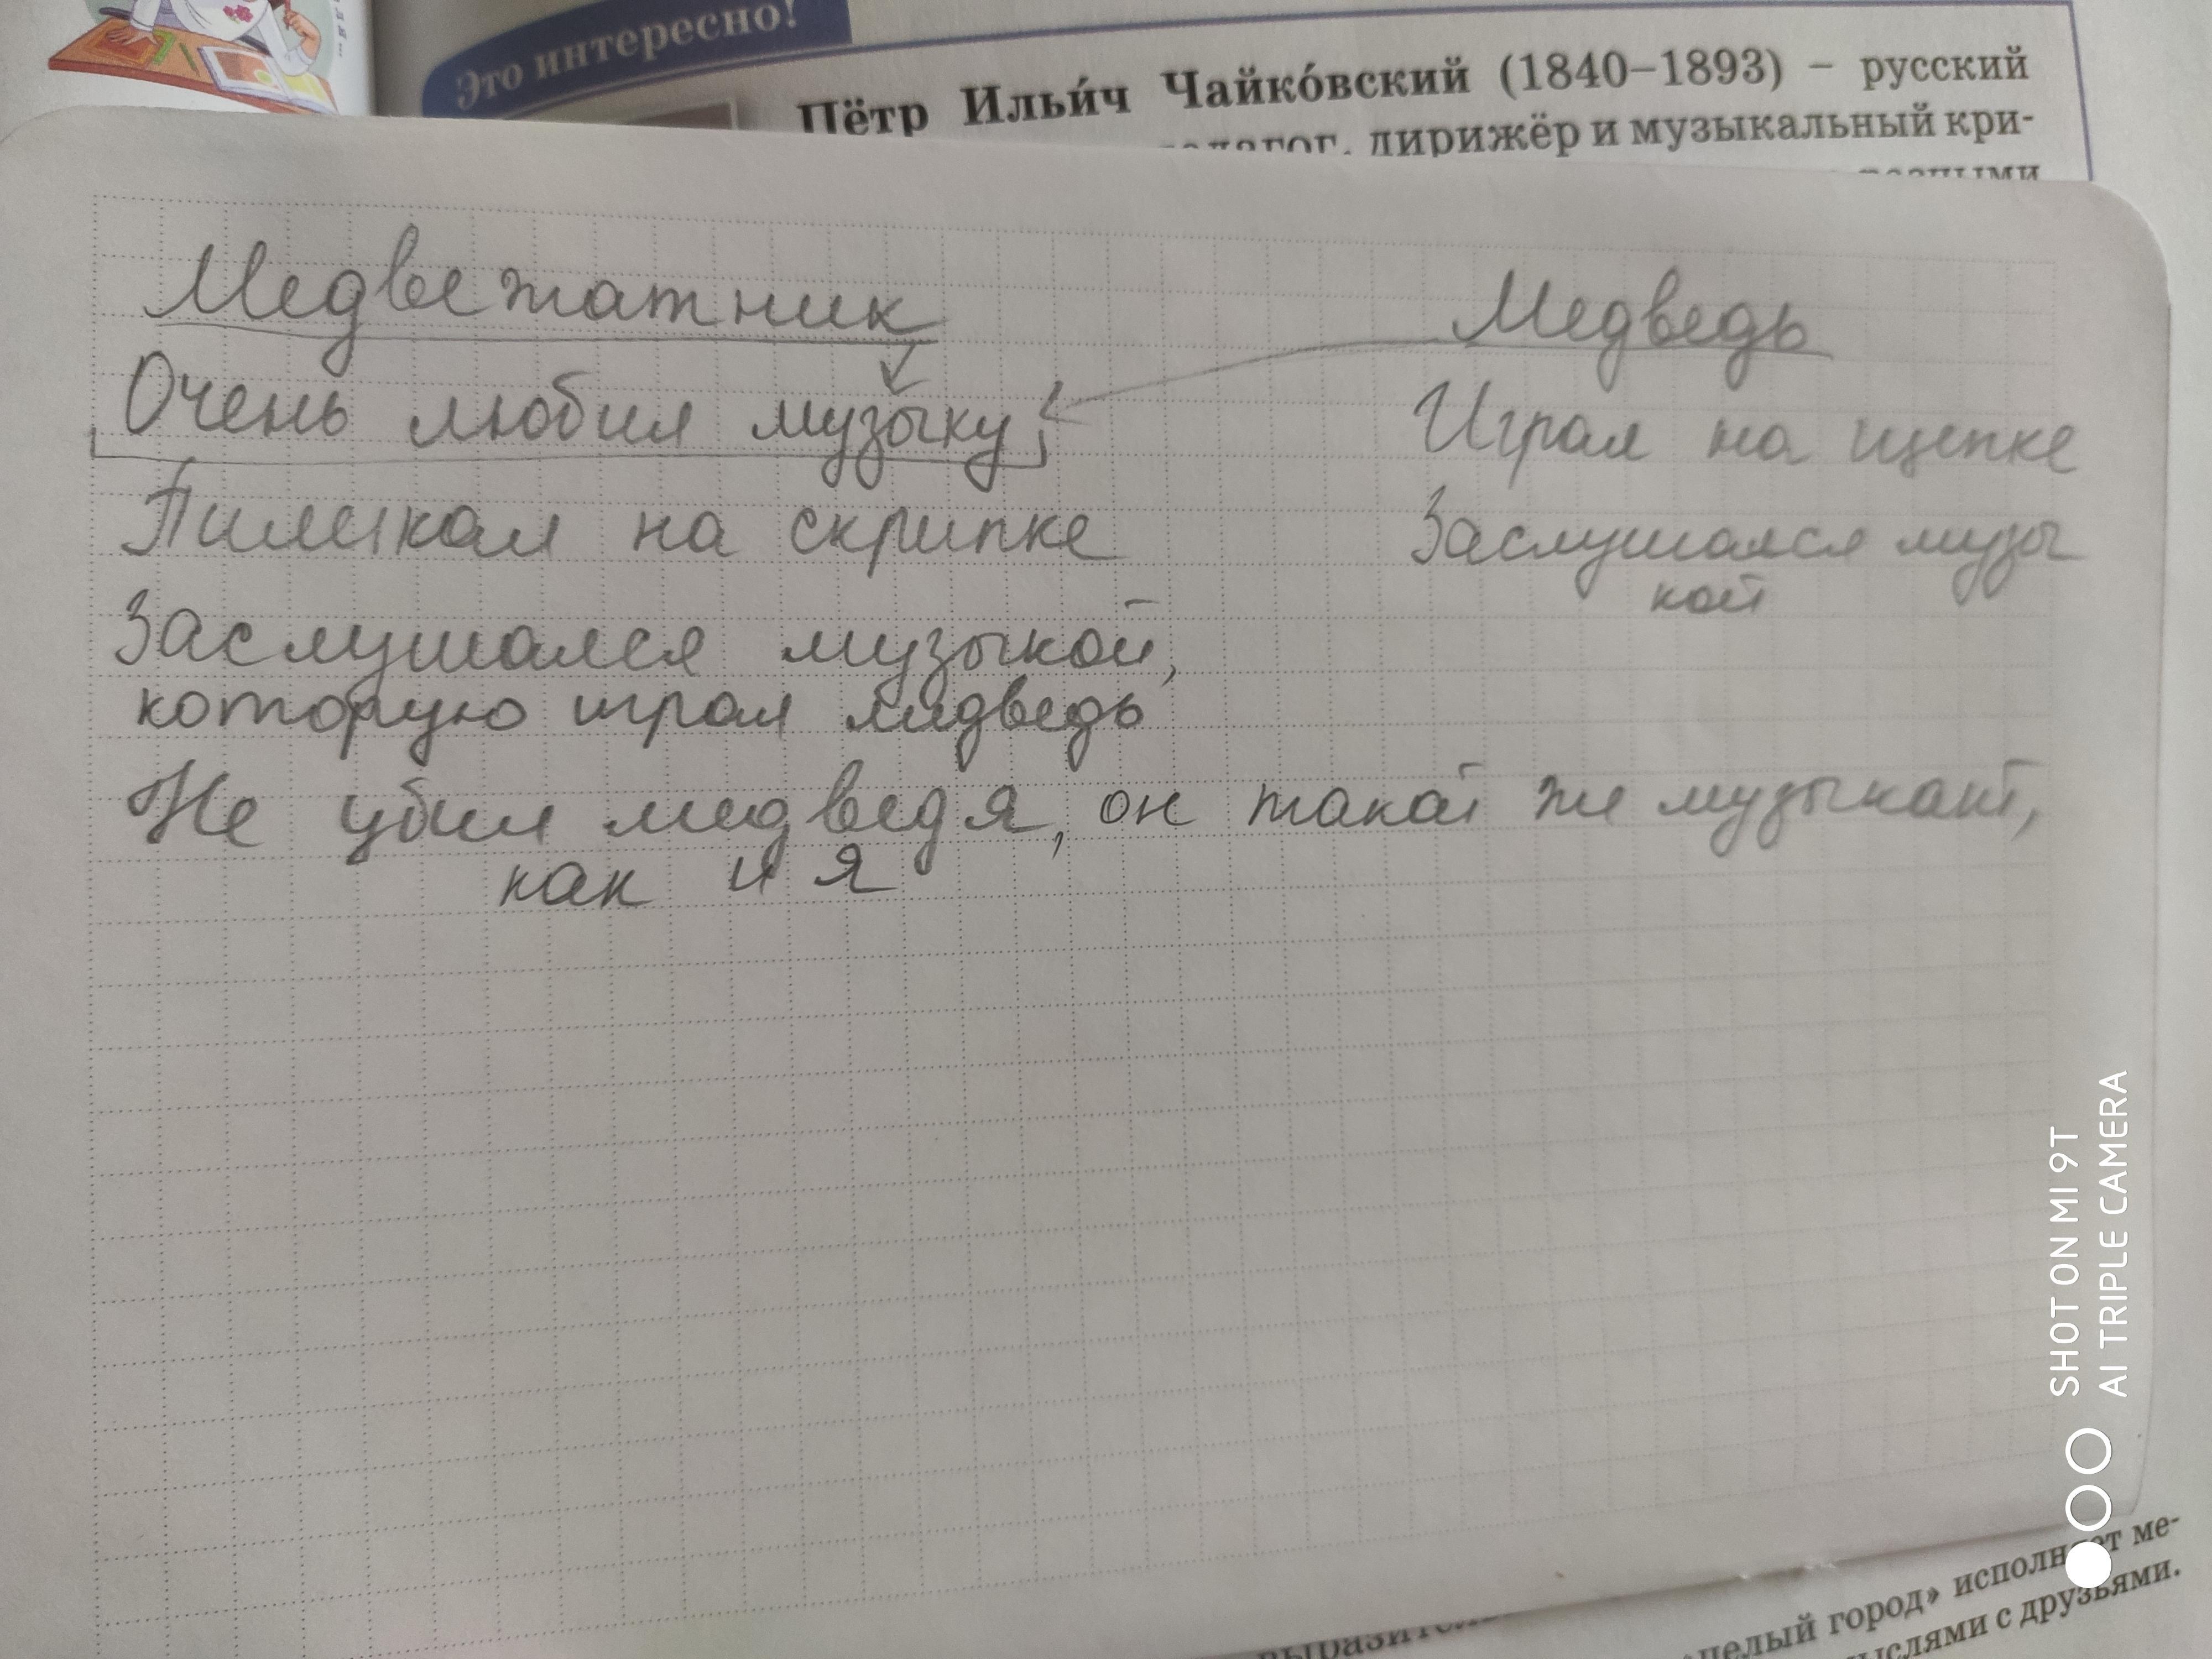 Это интересно!
Пётр Ильи́ч Чайко́вский (1840–1893) – русский
дирижёр и музыкальный кри-
Медвежатник
Медведь
Очень любил музыку
Играл на щепке
Пиликал на скрипке
Заслушался музы
кой
Заслушался музыкой,
которую играл медведь
Не убил медведя, он такой же музыкант,
как и я
целый город» исполняет ме-
с друзьями.
SHOT ON MI 9T
AI TRIPLE CAMERA